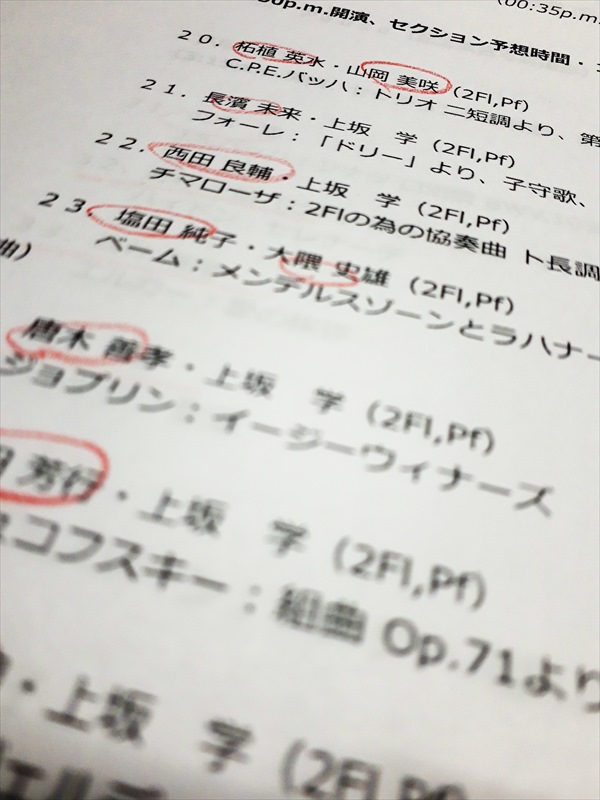 (00:35p.m.
30p.m.開演、セクション予想時間・
20. 柘植 英水・山岡 美咲 (2Fl,Pf)
C.P.E.バッハ：トリオ 二短調より、第
21. 長濱 未来・上坂　学 (2Fl,Pf)
フォーレ：「ドリー」より、子守歌、
22. 西田 良輔・上坂　学 (2Fl,Pf)
チマローザ：2Flの為の協奏曲 ト長調
23. 塩田 純子・大隈 史雄 (2Fl,Pf)
曲)
ベーム：メンデルスゾーンとラハナー
唐木 善孝・上坂　学 (2Fl,Pf)
ジョプリン：イージーウィナーズ
田 芳行・上坂　学 (2Fl,Pf)
スコフスキー：組曲 Op.71より
・上坂　学 (2Fl,Pf)